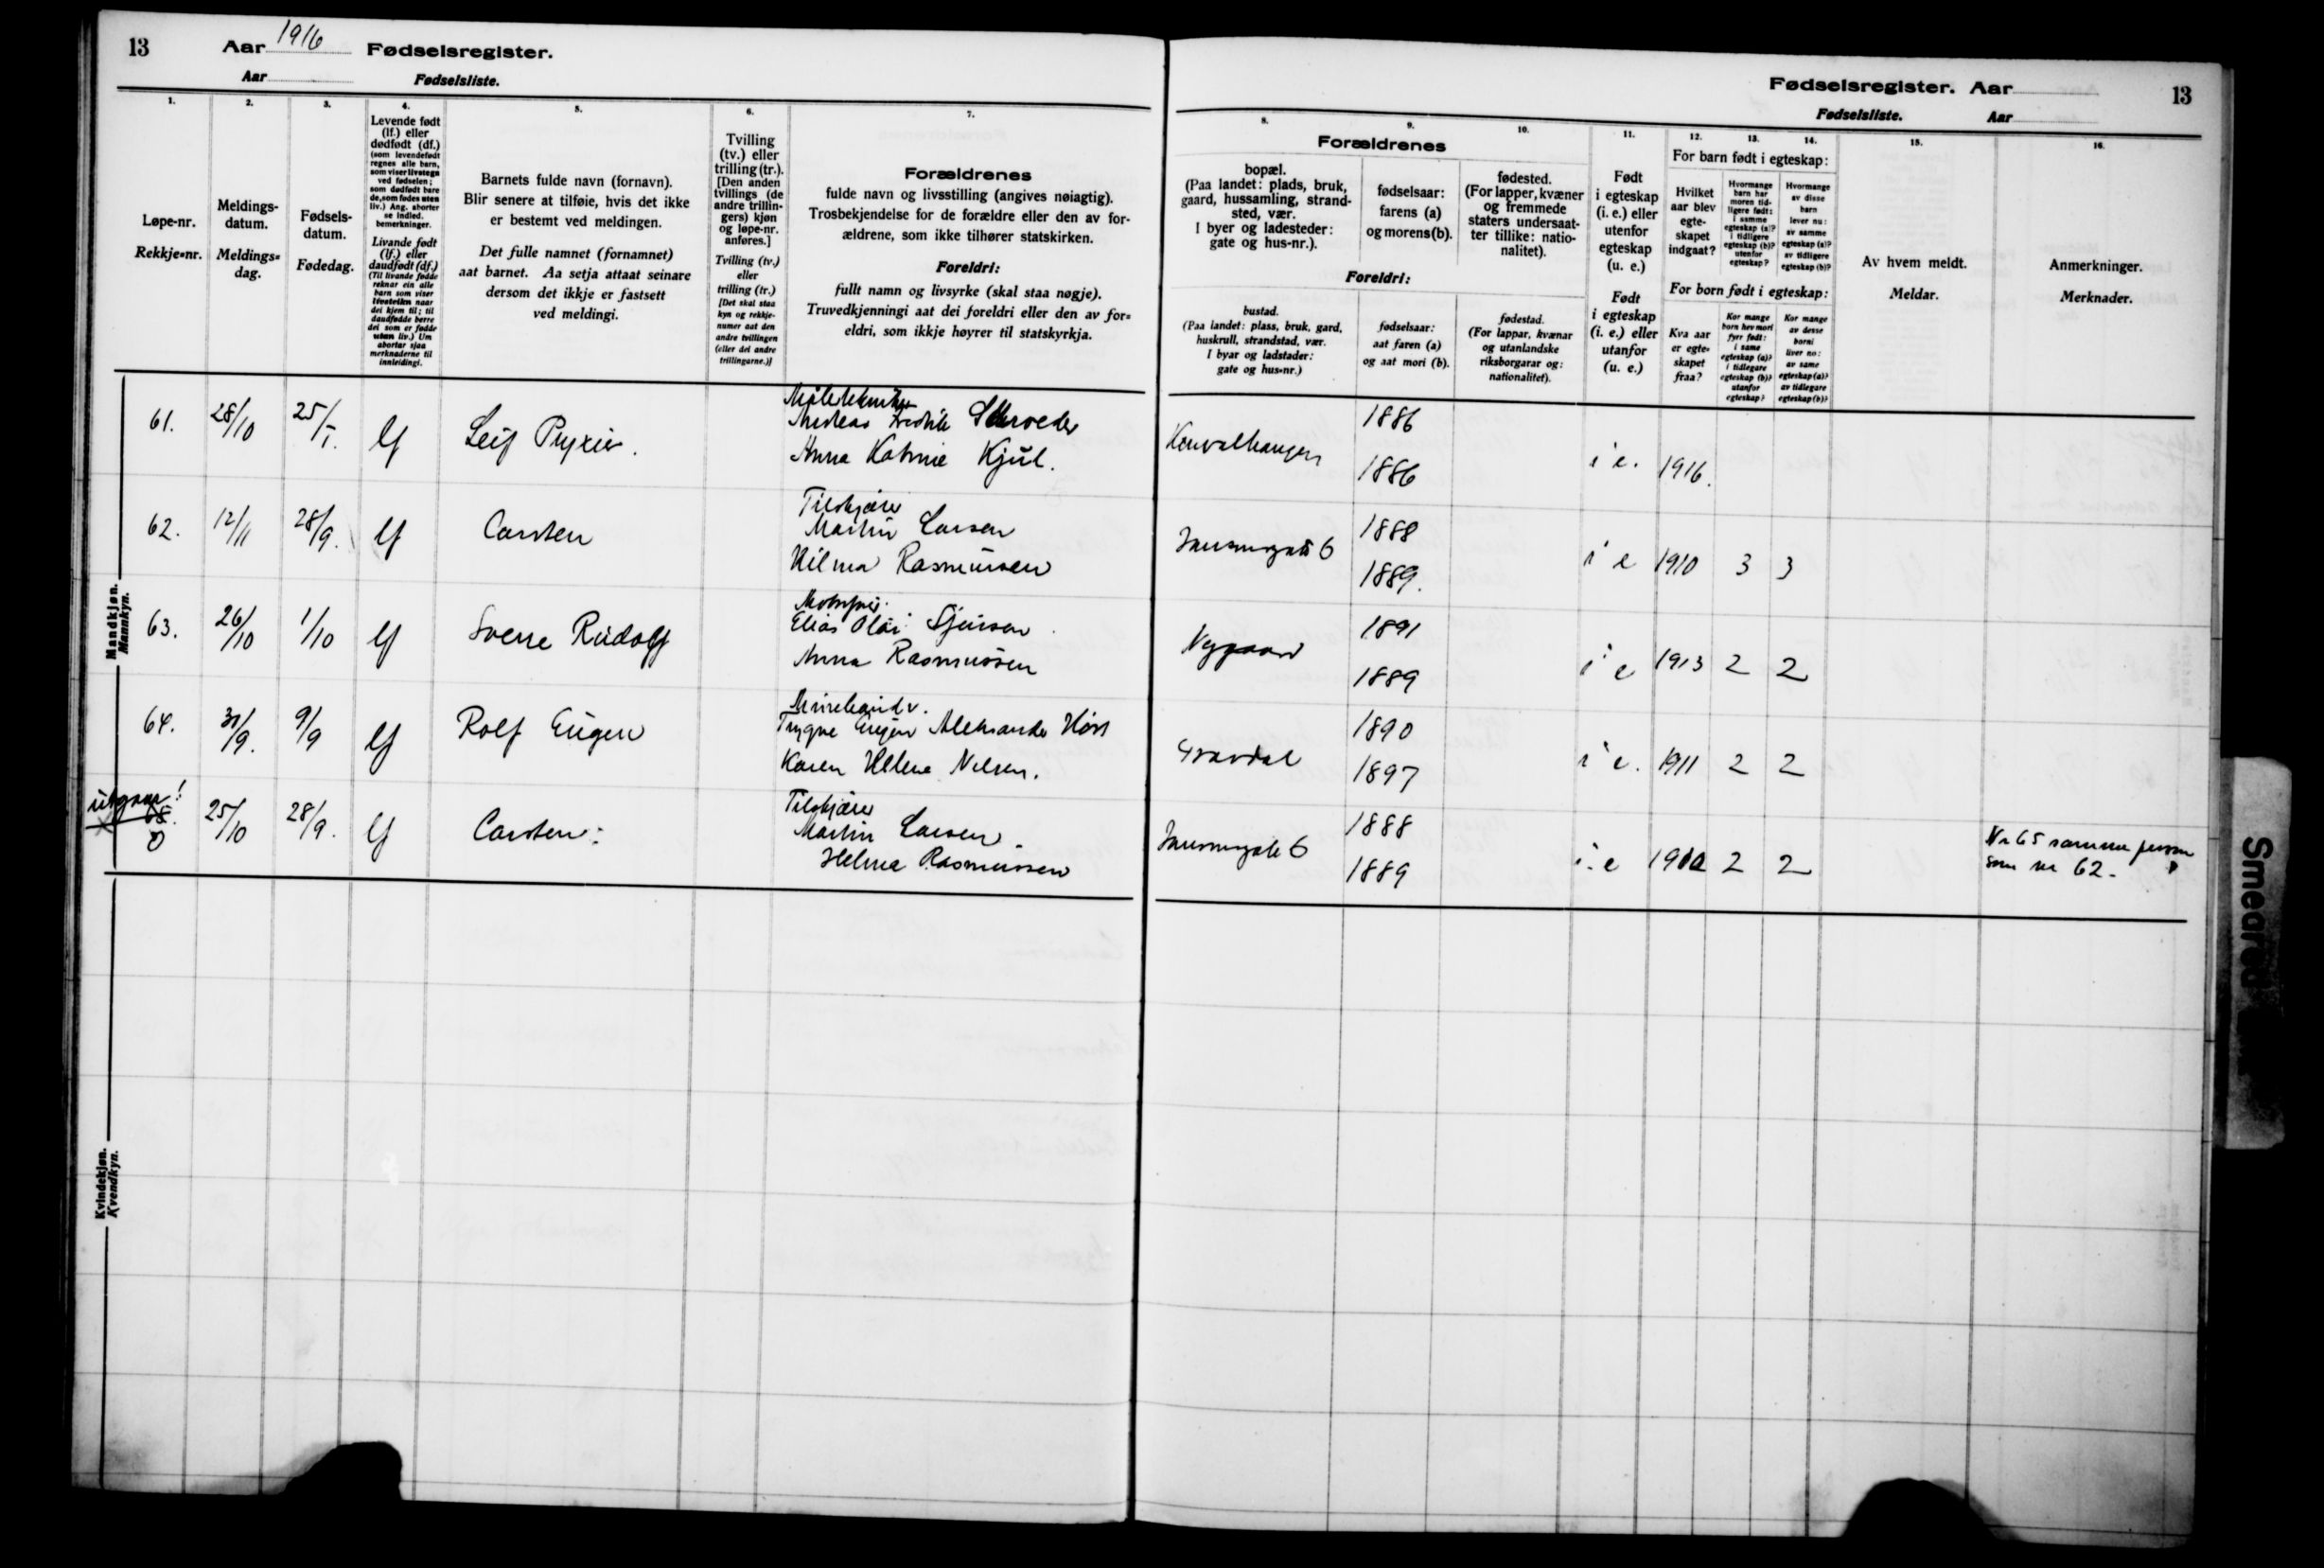 13
Aar 1916 Fødselsregister.
Aar Fødselsliste.
1.
2.
3.
4.
5.
6.
7.
Løpe-nr.
Rekkje=nr.
Meldings-
datum.
Meldings=
dag.
Fødsels-
datum.
Fødedag.
Levende født
(lf.) eller
dødfødt (df.)
(som levendefødt
regnes alle barn,
som viser livstegn
ved fødselen;
som dødfødt bare
de, som fødes uten
liv.) Ang. aborter
se indled.
bemerkninger.
Livande født
(lf.) eller
daudfødt (df.)
(Til livande fødde
reknar ein alle
barn som viser
livsteikn naar
dei kjem til; til
daudfødde berre
dei som er fødde
utan liv.) Um
abortar sjaa
merknaderne til
innleidingi.
Barnets fulde navn (fornavn).
Blir senere at tilføie, hvis det ikke
er bestemt ved meldingen.
Det fulle namnet (fornamnet)
aat barnet. Aa setja attaat seinare
dersom det ikkje er fastsett
ved meldingi.
Tvilling
(tv.) eller
trilling (tr.).
[Den anden
tvillings (de
andre trillin-
gers) kjøn
og løpe-nr.
anføres.]
Tvilling (tv.)
eller
trilling (tr.)
[Det skal staa
kyn og rekkje-
numer aat den
andre tvillingen
(eller dei andre
trillingarne.)]
Forældrenes
fulde navn og livsstilling (angives nøiagtig).
Trosbekjendelse for de forældre eller den av for-
ældrene, som ikke tilhører statskirken.
Foreldri:
fullt namn og livsyrke (skal staa nøgje).
Truvedkjenningi aat dei foreldri eller den av for=
eldri, som ikkje høyrer til statskyrkja.
Fødselsregister. Aar
13
Fødselsliste. Aar
8.
9.
10.
11.
12.
13.
14.
15.
16.
Forældrenes
bopæl.
(Paa landet: plads, bruk,
gaard, hussamling, strand-
sted, vær.
I byer og ladesteder:
gate og hus-nr.).
fødselsaar:
farens (a)
og morens (b).
fødested.
(For lapper, kvæner
og fremmede
staters undersaat-
ter tillike: natio-
nalitet).
Foreldri:
bustad.
(Paa landet: plass, bruk, gard,
huskrull, strandstad, vær.
I byar og ladstader:
gate og hus=nr.)
fødselsaar:
aat faren (a)
og aat mori (b).
fødestad.
(For lappar, kvænar
og utanlandske
riksborgarar og:
nationalitet).
Født
i egteskap
(i. e.) eller
utenfor
egteskap
(u. e.)
Født
i egteskap
(i. e.) eller
utanfor
(u. e.)
For barn født i egteskap:
Hvilket
aar blev
egte-
skapet
indgaat?
Hvormange
barn har
moren tid-
ligere født:
i samme
egteskap (a)?
i tidligere
egteskap (b)?
utenfor
egteskap?
Hvormange
av disse
barn
lever nu:
av samme
egteskap (a)?
av tidligere
egteskap (b)?
For born født i egteskap:
Kva aar
er egte=
skapet
fraa?
Kor mange
born hev mori
fyrr født:
i same
egteskap (a)?
i tidlegare
egteskap (b)?
utanfor
egteskap?
Kor mange
av desse
borni
liver no:
av same
egteskap (a)?
av tidlegare
egteskap (b)?
Av hvem meldt.
Meldar.
Anmerkninger.
Merknader.
Mandkjøn.
Mannkyn.
61. 28/10 lf Leif
Schroeder
Anna Kjul.
1886
1886
i e. 1916.
62. 12/11 28/9. lf Carsten
Martin Larsen
Hilma Rasmussen
6
1888
1889.
i e 1910 3 3
63. 26/10 1/10 lf Sverre Rudolf
Elias Sjursen
Anna Rasmussen
Nygaard
1891
1889
i e 1913 2 2
64. 9/9 lf Rolf Eugen
Trygve Eugen Aleksander
Karen Helene Nilsen.
Gravdal
1890
1897
i e. 1911 2 2
utgaar!
65.
0
25/10 28/9. lf Carsten
Martin Larsen
Helma Rasmussen
6
1888
1889
i. e 2 2
Nr 65 samme person
som nr 62.
Kvindekjøn.
Kvendkyn.
Smeared